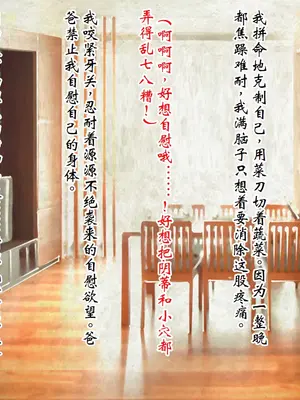 我拼命地克制自己，用菜刀切着蔬菜。因为一整晚
都焦躁难耐，我满脑子只想着要消除这股疼痛。
（啊啊啊，好想自慰哦……！好想把阴蒂和小穴都
弄得乱七八糟！）
我咬紧牙关，忍耐着源源不绝袭来的自慰欲望。爸
爸禁止我自慰自己的身体。